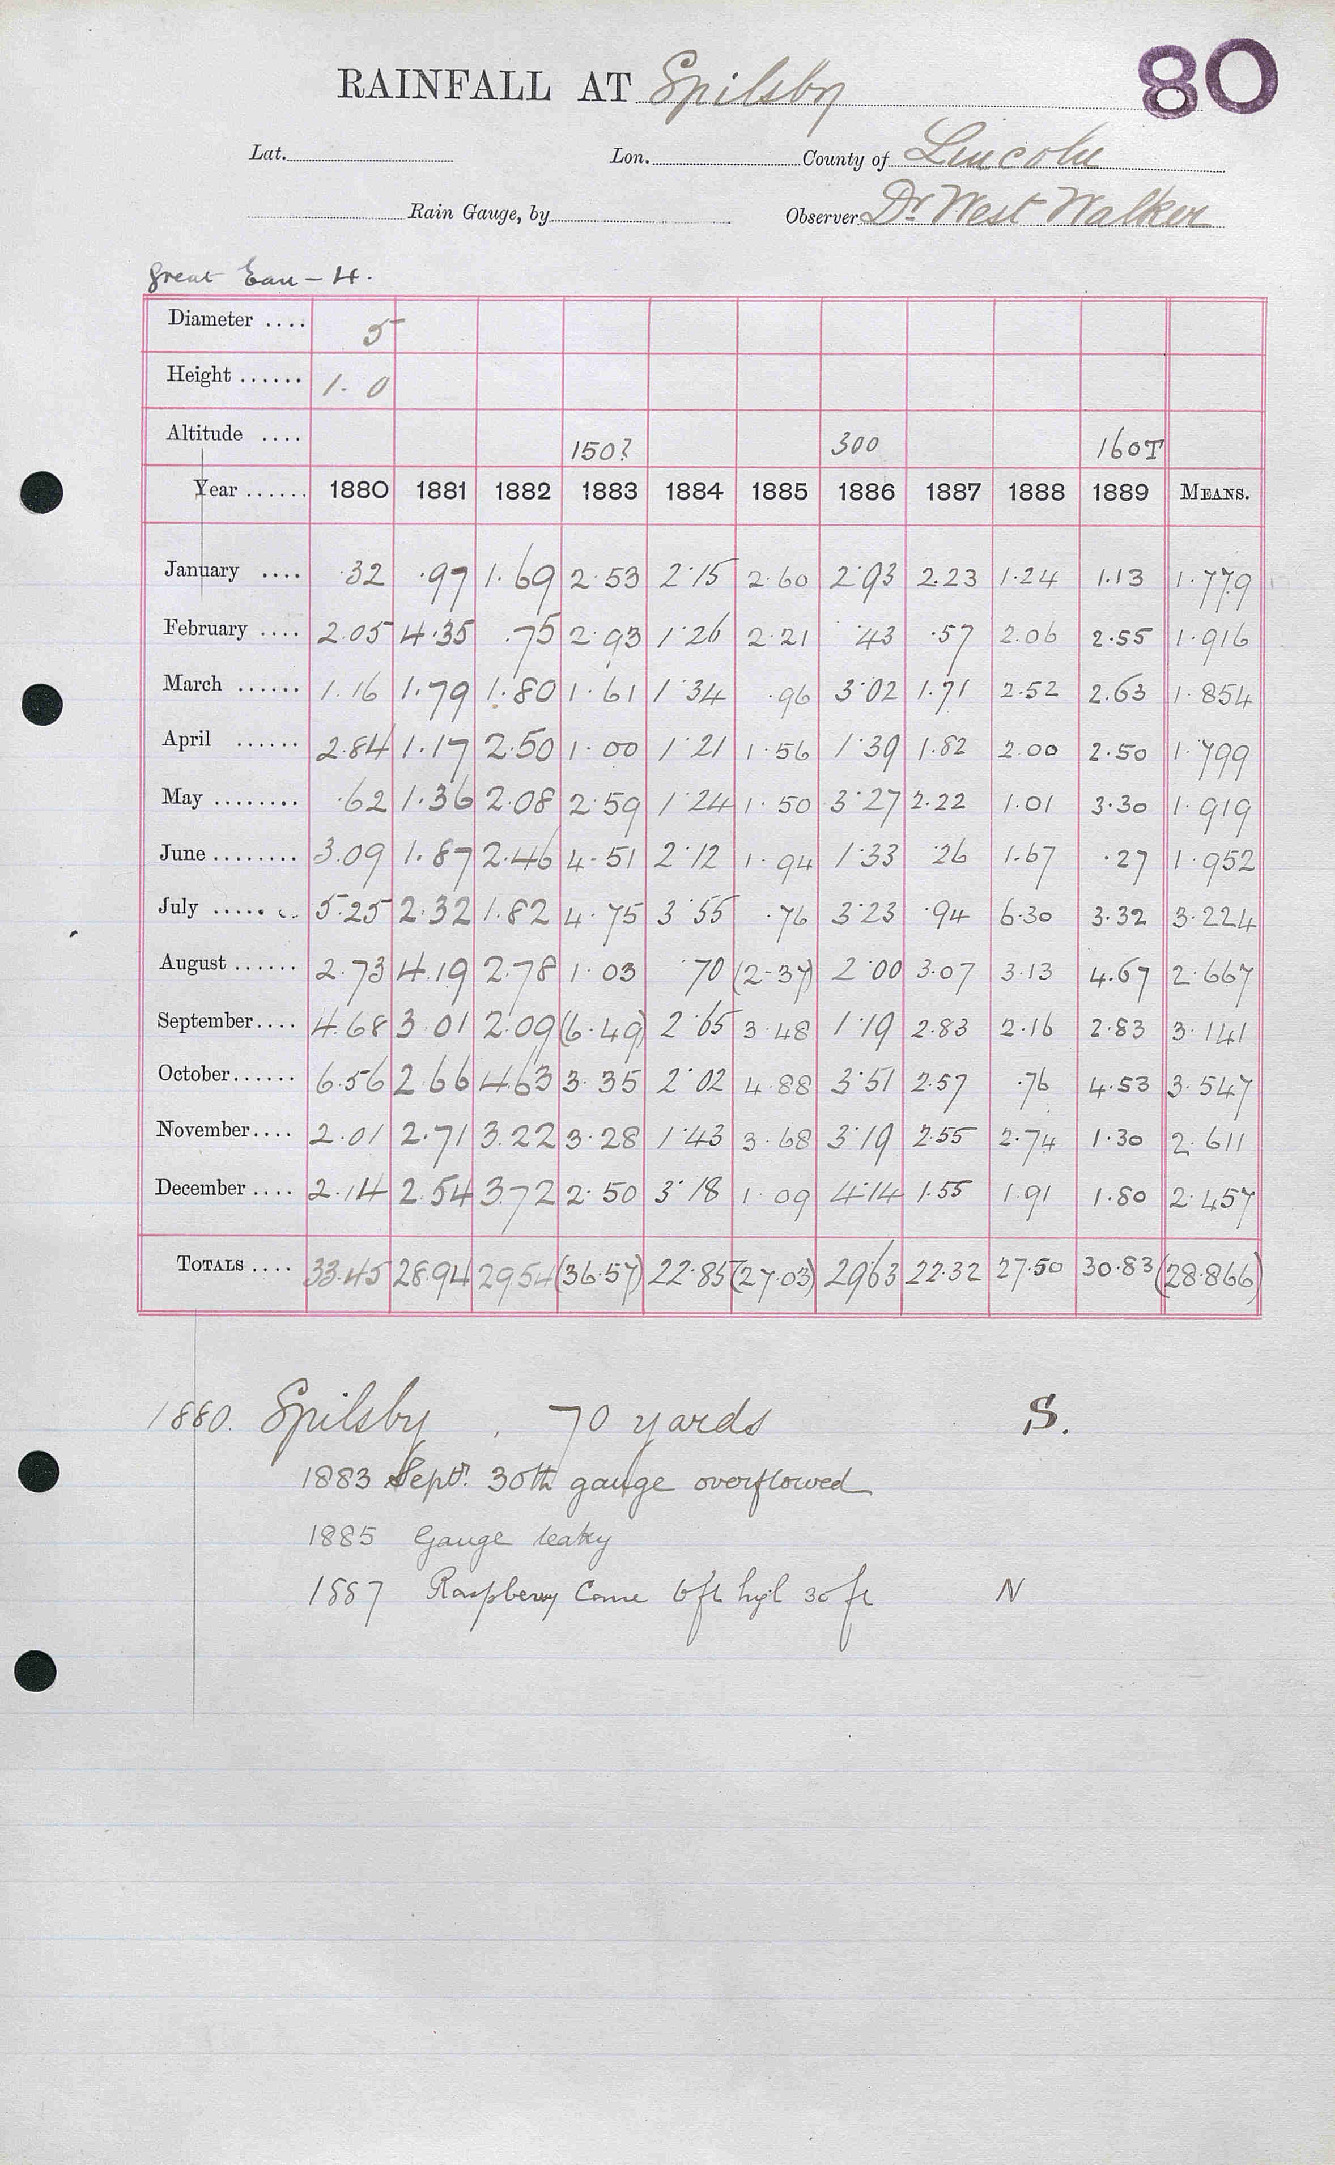 80
RAINFALL AT Spilsby
Lat. Lon. County of Lincoln
Rain Gauge, by Observer Dr West Walker
Great Eau - H.
Diameter .... 5
Height ...... 1.0
Altitude .... 150? 300 160T
Year ...... 1880 1881 1882 1883 1884 1885 1886 1887 1888 1889 MEANS.
January .... .32 .97 1.69 2.53 2.15 2.60 2.93 2.23 1.24 1.13 1.779
February .... 2.05 4.35 .75 2.93 1.26 2.21 .43 .57 2.06 2.55 1.916
March ...... 1.16 1.79 1.80 1.61 1.34 .96 3.02 1.71 2.52 2.63 1.854
April ...... 2.84 1.17 2.50 1.00 1.21 1.56 1.39 1.82 2.00 2.50 1.799
May ........ .62 1.36 2.08 2.59 1.24 1.50 3.27 2.22 1.01 3.30 1.919
June ........ 3.09 1.87 2.46 4.51 2.12 1.94 1.33 .26 1.67 .27 1.952
July ...... 5.25 2.32 1.82 4.75 3.55 .76 3.23 .94 6.30 3.32 3.224
August ...... 2.73 4.19 2.78 1.03 .70 (2.37) 2.00 3.07 3.13 4.67 2.667
September.... 4.68 3.01 2.09 (6.49) 2.65 3.48 1.19 2.83 2.16 2.83 3.141
October...... 6.56 2.66 4.63 3.35 2.02 4.88 3.51 2.57 .76 4.53 3.547
November.... 2.01 2.71 3.22 3.28 1.43 3.68 3.19 2.55 2.74 1.30 2.611
December .... 2.14 2.54 3.72 2.50 3.18 1.09 4.14 1.55 1.91 1.80 2.457
TOTALS .... 33.45 28.94 29.54 (36.57) 22.85 (27.03) 29.63 22.32 27.50 30.83 (28.866)
1880. Spilsby . 70 yards S.
1883 Septr. 30th gauge overflowed
1885 Gauge leaky
1887 Raspberry Cane 6ft high 30 ft N